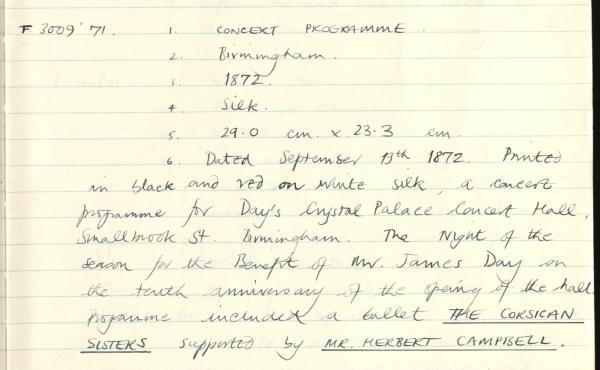 F 3009'71. 1. CONCERT PROGRAMME.
2. Birmingham.
3. 1872.
4. Silk.
5. 29.0 cm. x 23.3 cm.
6. Dated September 19th 1872. Printed
in black and red on white silk, a concert
programme for Day's Crystal Palace Concert Hall,
Smallbrook St. Birmingham. The Night of the
season for the Benefit of Mr. James Day on
the tenth anniversary of the opening of the hall.
Programme included a ballet THE CORSICAN
SISTERS supported by MR. HERBERT CAMPBELL.